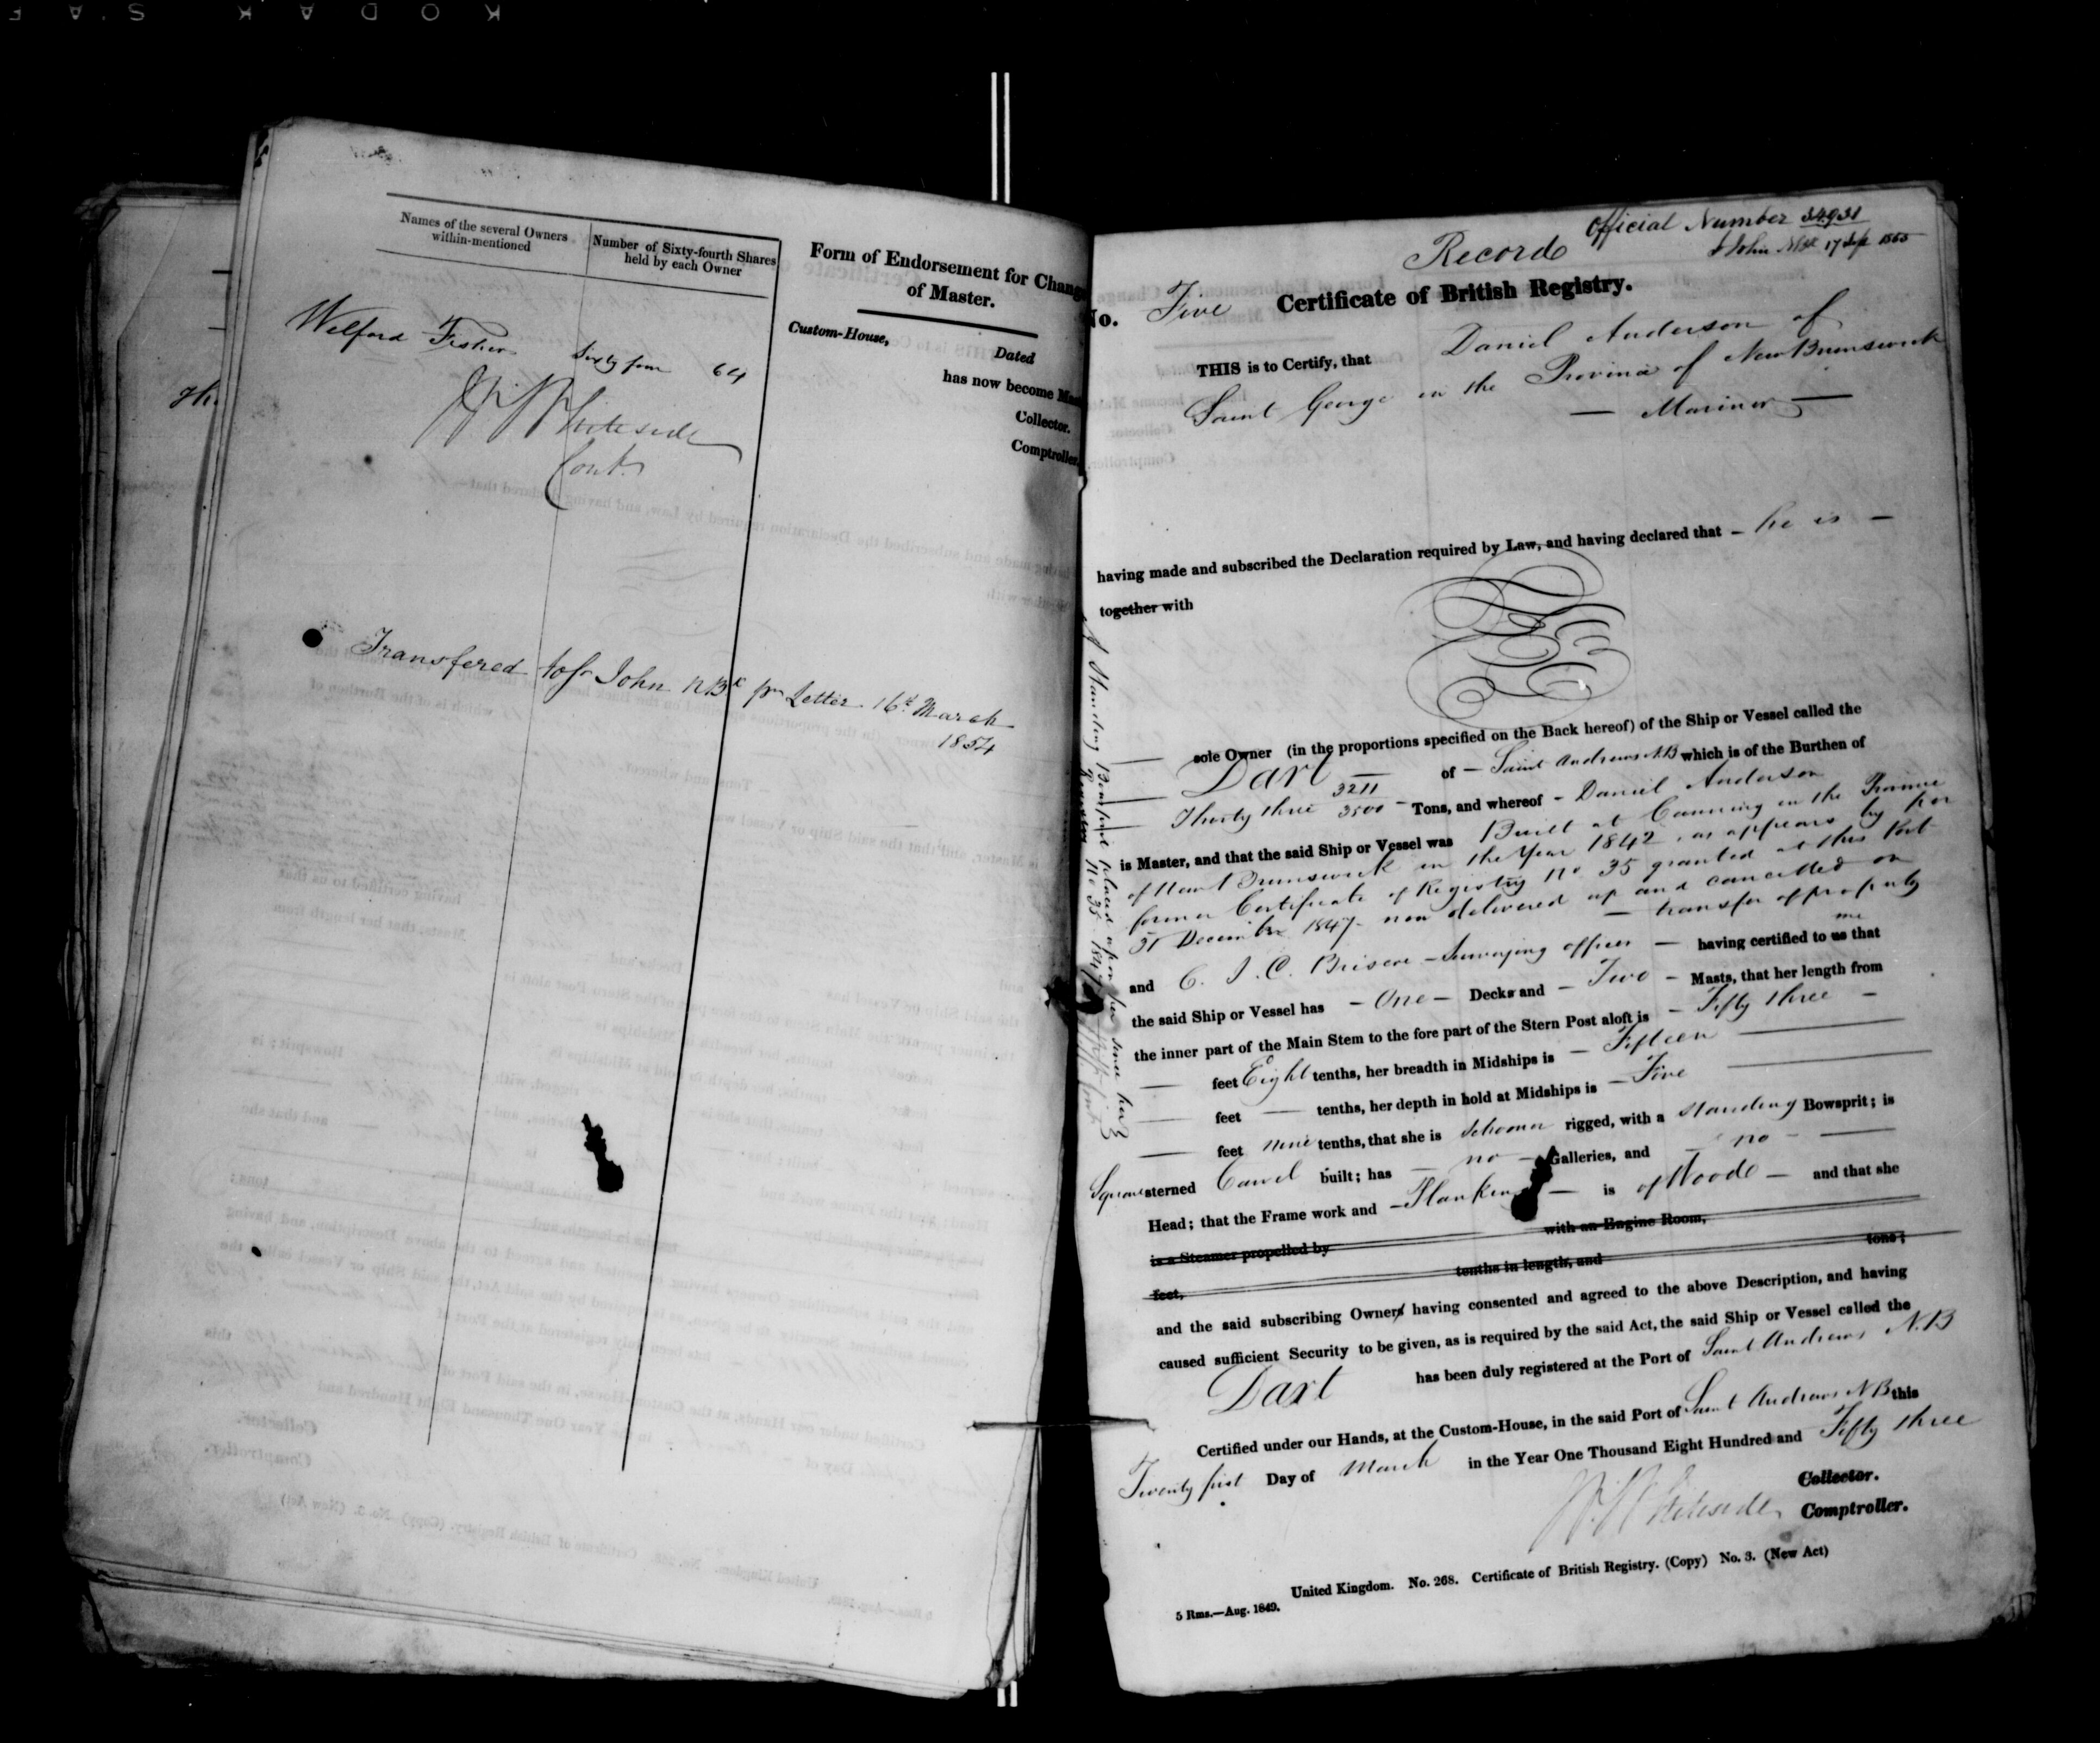 KODAK SAF
Names of the several Owners
within-mentioned
Number of Sixty-fourth Shares
held by each Owner
Form of Endorsement for Change
of Master.
Custom-House,
Dated
has now become Mas
Collector.
Comptroller.
Wilford Fisher Sixty four 64
W Whiteside
Cont.
Transfered to St John NBk pr Letter 16th March
1854
Official Number 34931
St John NBk 17 Sept 1855
Record
No. Five Certificate of British Registry.
THIS is to Certify, that Daniel Anderson of
Saint George in the Province of New Brunswick
— Mariner —
having made and subscribed the Declaration required by Law, and having declared that – he is –
together with
sole Owner (in the proportions specified on the Back hereof) of the Ship or Vessel called the
Dart of – Saint Andrews N.B which is of the Burthen of
Thirty three 3211/3500 Tons, and whereof – Daniel Anderson
is Master, and that the said Ship or Vessel was Built at Canning in the Province
of New Brunswick in the Year 1842, as appears by her
former Certificate of Registry No 35 granted at this Port
31 December 1847 now delivered up and cancelled on
— transfer of property
and C. J. C. Briscoe – Surveying officer — having certified to us me that
the said Ship or Vessel has – One – Decks and – Two – Masts, that her length from
the inner part of the Main Stem to the fore part of the Stern Post aloft is – Fifty three –
feet Eight tenths, her breadth in Midships is – Fifteen
feet — tenths, her depth in hold at Midships is – Five
feet nine tenths, that she is Schooner rigged, with a standing Bowsprit; is
Square sterned Carvel built; has – no – Galleries, and – no –
Head; that the Frame work and – Planking – is of Wood – and that she
is a Steamer propelled by with an Engine Room,
feet, tenths in length, and tons;
and the said subscribing Owners having consented and agreed to the above Description, and having
caused sufficient Security to be given, as is required by the said Act, the said Ship or Vessel called the
Dart has been duly registered at the Port of Saint Andrews N.B
Certified under our Hands, at the Custom-House, in the said Port of Saint Andrews NB this
Twenty first Day of March in the Year One Thousand Eight Hundred and Fifty three
Collector.
W Whiteside Comptroller.
United Kingdom. No. 268. Certificate of British Registry. (Copy) No. 3. (New Act)
5 Rms.—Aug. 1849.
A Standing Bowsprit placed upon her since her
Register No 35 1847